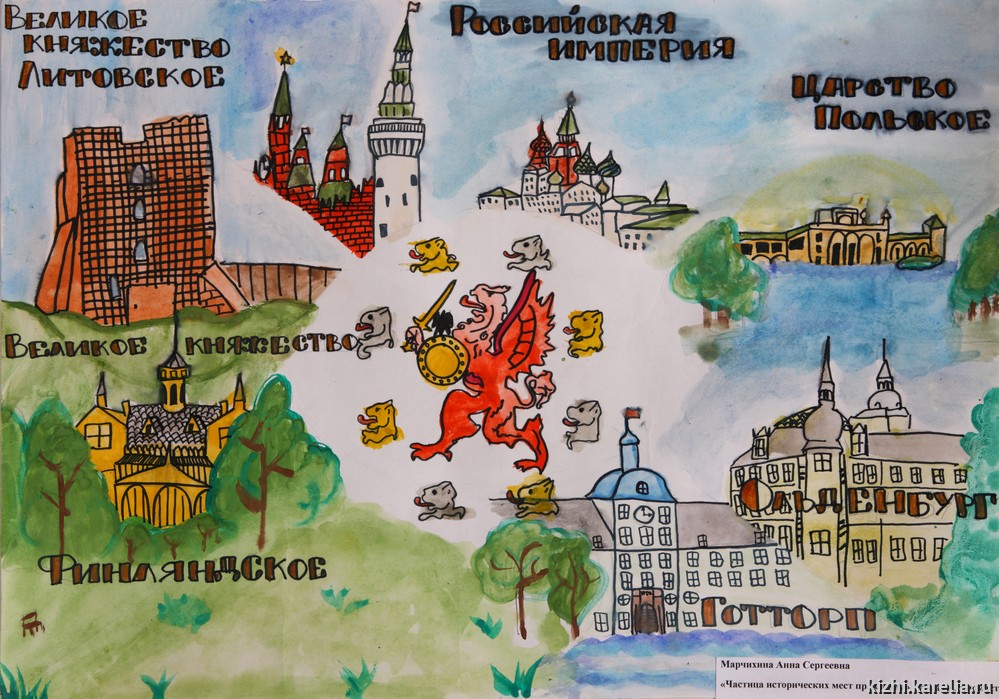 Великое
княжество
Литовское
Российская
империя
Царство
Польское
Великое княжество
Финляндское
Ольденбург
Готторп
Марчихина Анна Сергеевна
«Частица исторических мест
kizhi.karelia.ru